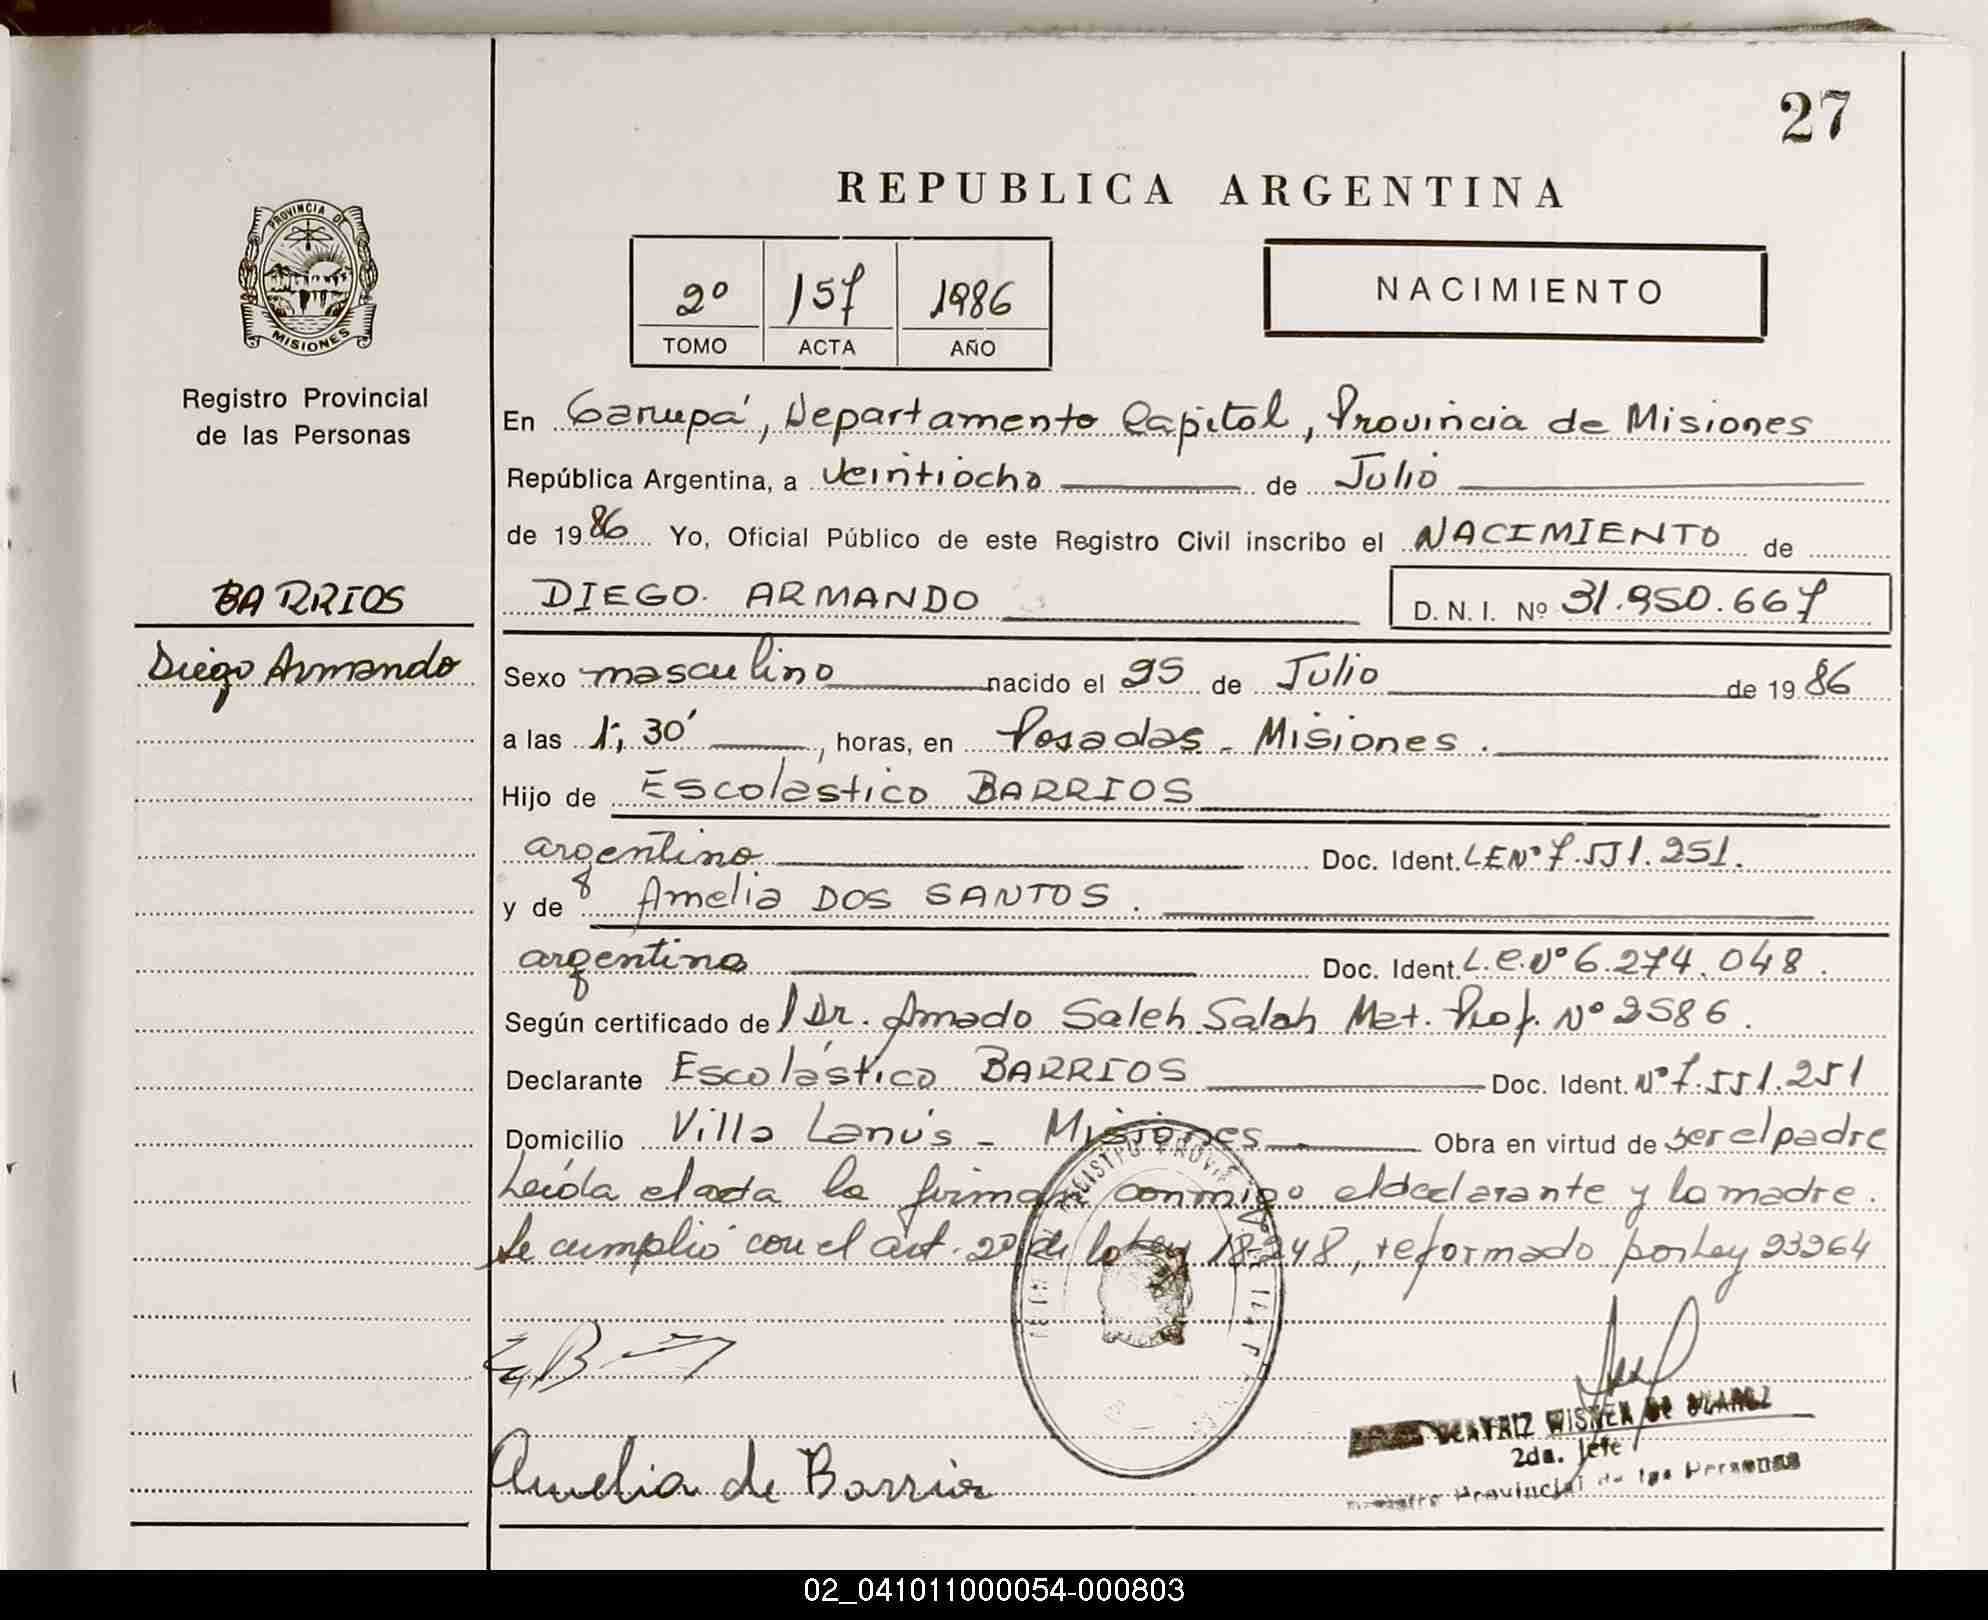 27
REPUBLICA ARGENTINA
PROVINCIA DE
MISIONES
Registro Provincial
de las Personas
2º 157 1986
TOMO ACTA AÑO
NACIMIENTO
En Garupá, Departamento Capital, Provincia de Misiones
República Argentina, a veintiocho de Julio
de 1986 Yo, Oficial Público de este Registro Civil inscribo el NACIMIENTO de
BARRIOS
Diego Armando
DIEGO ARMANDO D. N. I. Nº 31.950.667
Sexo masculino nacido el 25 de Julio de 1986
a las 1; 30' , horas, en Posadas - Misiones.
Hijo de Escolástico BARRIOS
argentino Doc. Ident. LE Nº 7.551.251.
y de Amelia DOS SANTOS.
argentina Doc. Ident. L.C. Nº 6.274.048.
Según certificado del Dr. Amado Saleh Salah Mat. Prof. Nº 2586.
Declarante Escolástico BARRIOS Doc. Ident. Nº 7.551.251
Domicilio Villa Lanús - Misiones Obra en virtud de ser el padre
Leída el acta la firman conmigo el declarante y la madre.
Se cumplió con el art. 2º de la Ley 18.248, reformado por Ley 23264
Amelia de Barrios
BEATRIZ DE
2da. Jefe
Provincial de las Personas
02_041011000054-000803